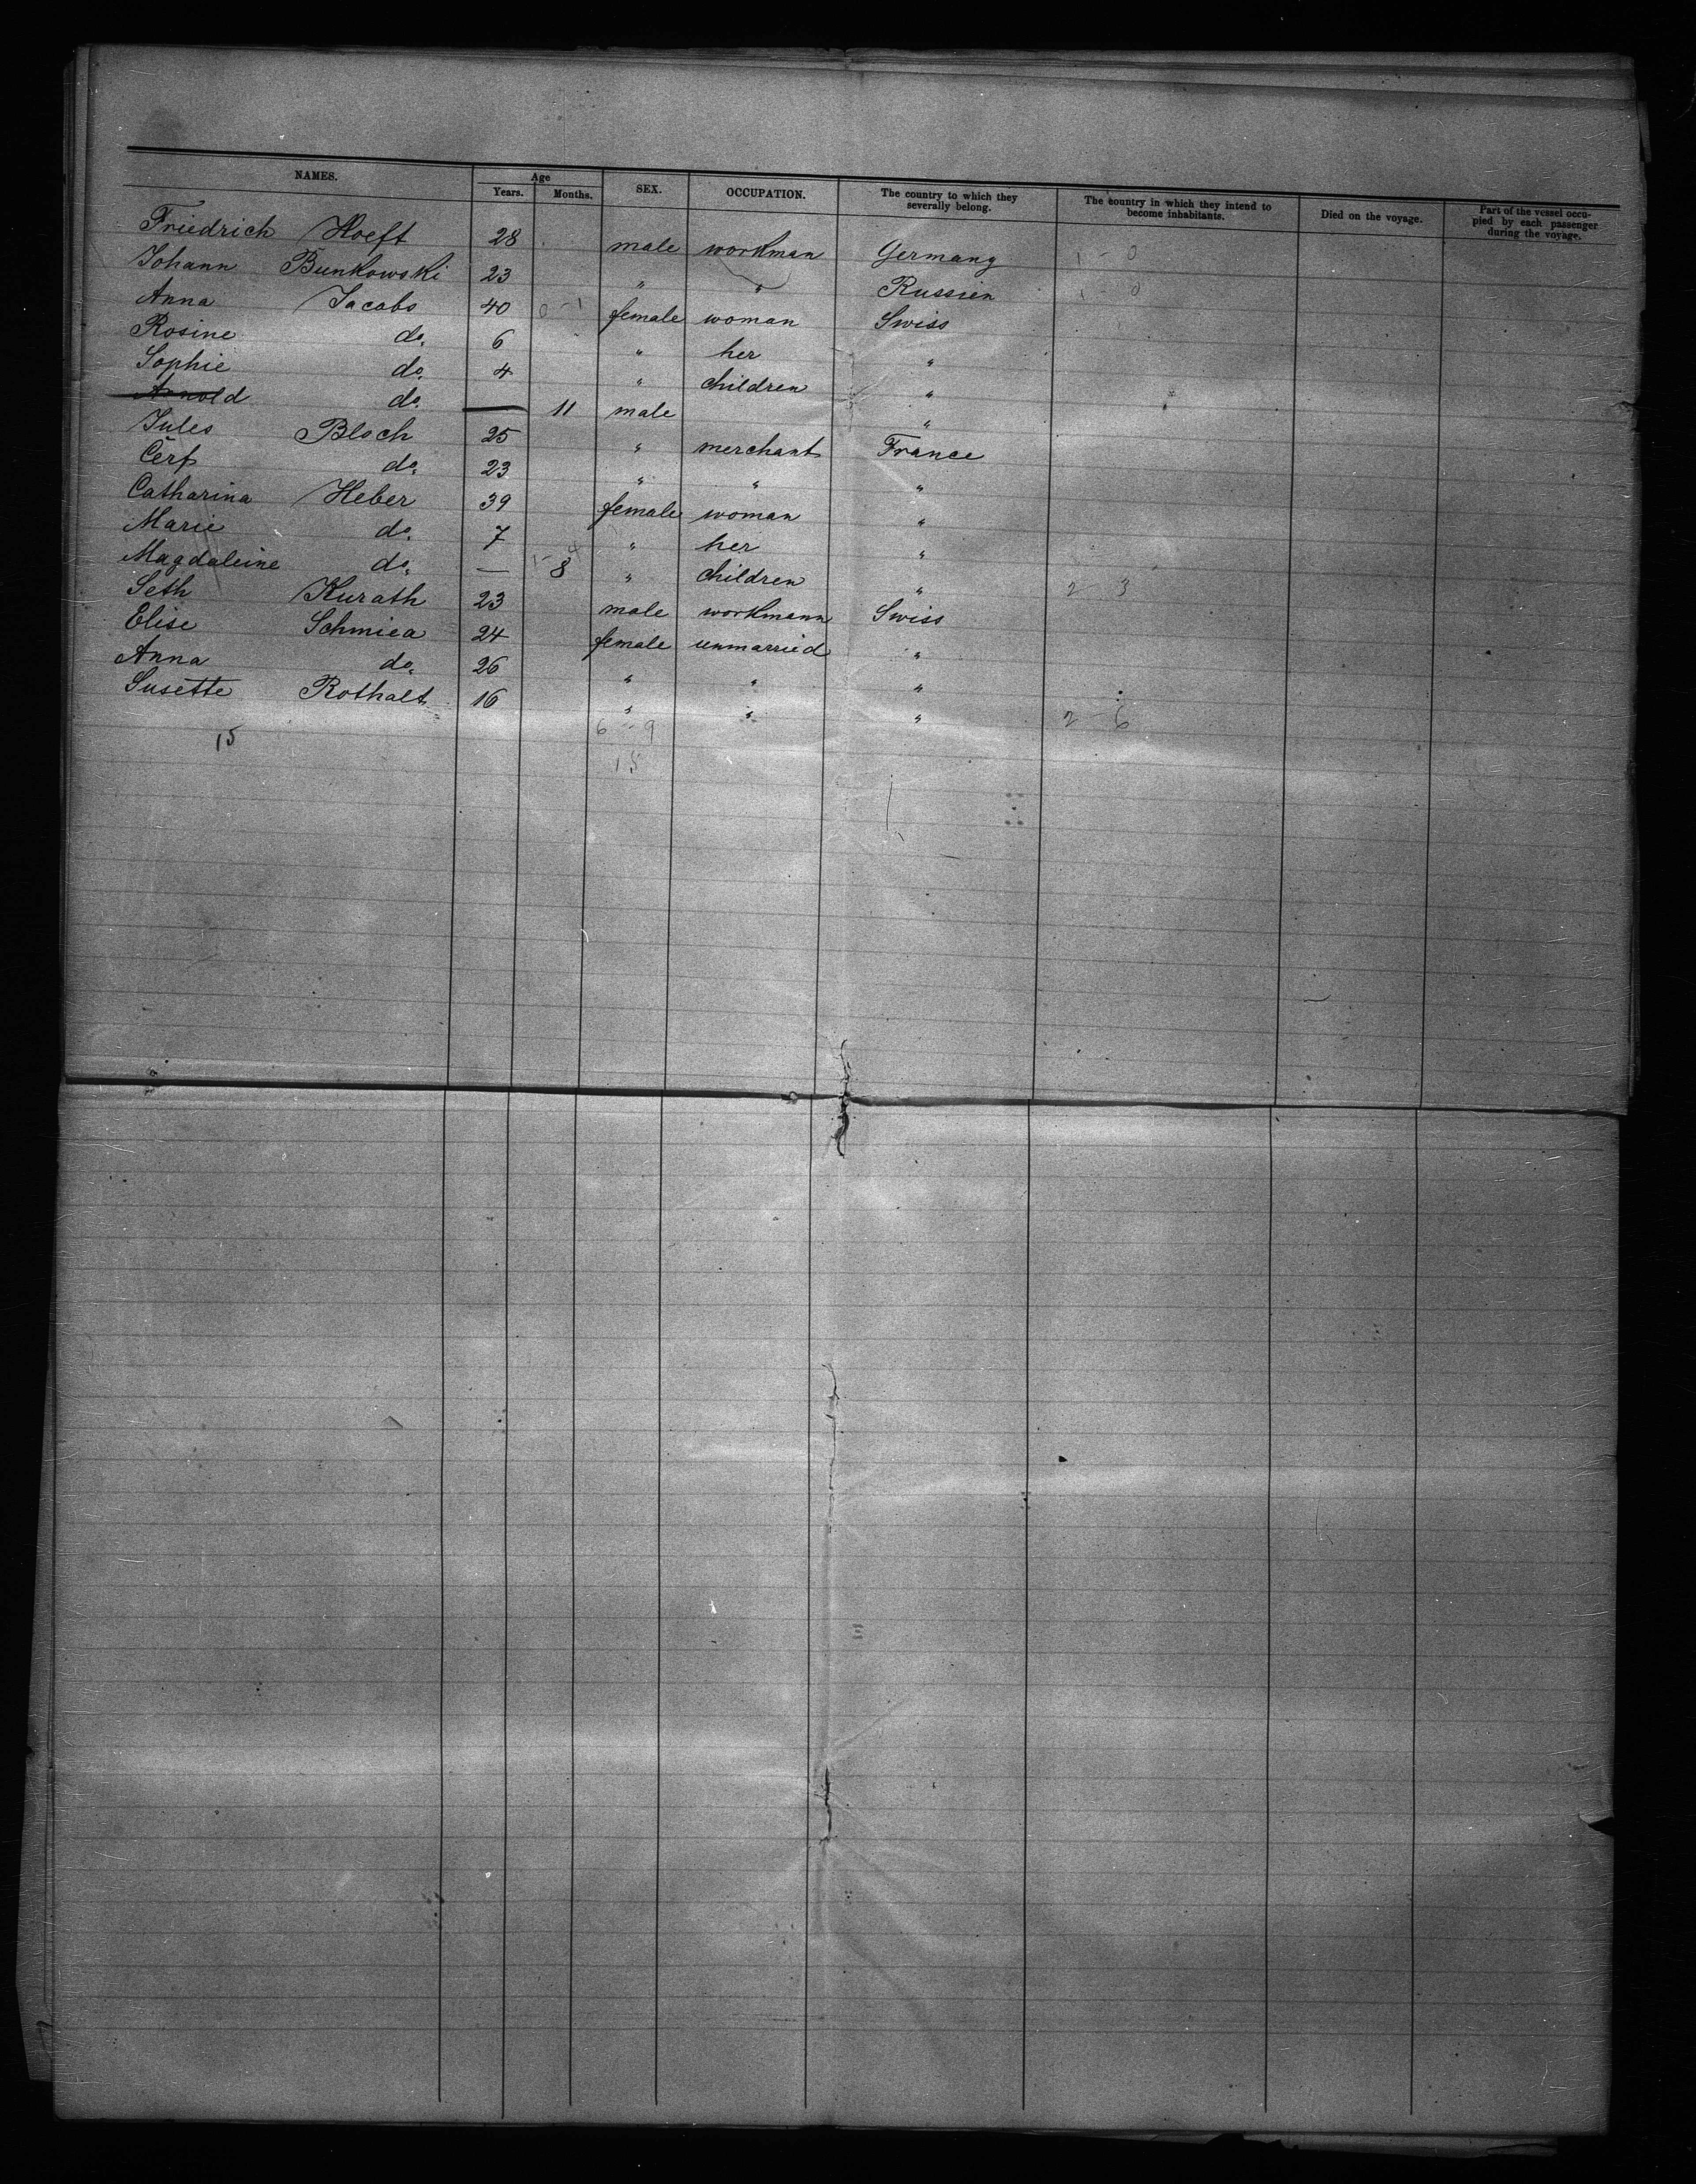 NAMES. Age Years. Months. SEX. OCCUPATION. The country to which they severally belong. The country in which they intend to become inhabitants. Died on the voyage. Part of the vessel occupied by each passenger during the voyage.
Friedrich Hoeft 28 male workman Germany 1 - 0
Johann Bunkowski 23 " " Russien 1 - 0
Anna Jacobs 40 0 - 1 female woman Swiss
Rosine do. 6 " her "
Sophie do. 4 " children "
Arnold do. — 11 male "
Jules Bloch 25 " merchant France
Cerf do. 23 " " "
Catharina Heber 39 female woman "
Marie do. 7 " her "
Magdaleine do. — 8 " children " 2 - 3
Seth Kurath 23 male workmann Swiss
Elise Schmiea 24 female unmarried "
Anna do. 26 " " "
Susette Rothalt 16 " " " 2 - 6
15 6 - 9
15